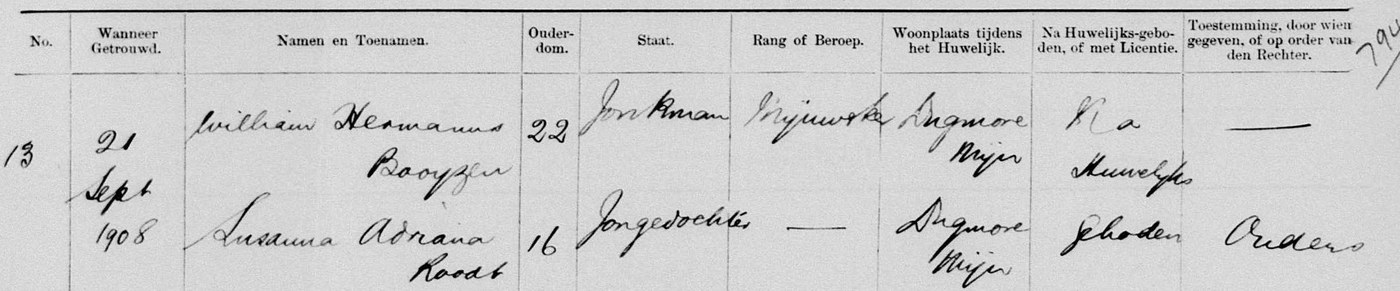 No.
Wanneer Getrouwd.
Namen en Toenamen.
Ouder-dom.
Staat.
Rang of Beroep.
Woonplaats tijdens het Huwelijk.
Na Huwelijks-gebo-den, of met Licentie.
Toestemming, door wien gegeven, of op order van den Rechter.
794
13
21
Sept
1908
William Hermanus
Booyzen
22
Jonkman
Mijnwerker
Dugmore
Mijn
Na
Huwelyks
Susanna Adriana
Roodt
16
Jongedochter
—
Dugmore
Mijn
geboden
Ouders